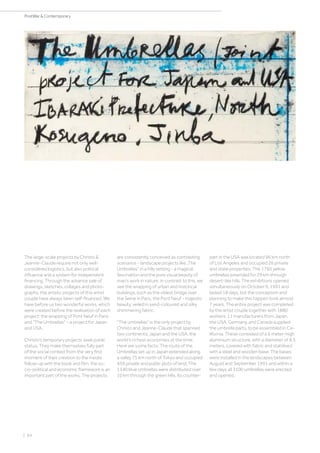 PostWar & Contemporary
The Umbrellas / Joint
project for Japan and USA
Ibaraki Prefecture, North
Kosugeno, Jinba
The large-scale projects by Christo &
Jeanne-Claude require not only well-
considered logistics, but also political
influence and a system for independent
financing. Through the advance sale of
drawings, sketches, collages and photo-
graphs, the artistic projects of the artist
couple have always been self-financed. We
have before us two wonderful works, which
were created before the realisation of each
project: the wrapping of 'Pont Neuf' in Paris
and "The Umbrellas" – a project for Japan
and USA.
Christo's temporary projects seek public
status. They make themselves fully part
of the social context from the very first
moment of their creation to the media
follow-up with the book and film; the so-
cio-political and economic framework is an
important part of the works. The projects
are consistently conceived as contrasting
scenarios – landscape projects like „The
Umbrellas" in a hilly setting – a magical
fascination and the pure visual beauty of
man's work in nature. In contrast to this, we
see the wrapping of urban and historical
buildings, such as the oldest bridge over
the Seine in Paris, the Pont Neuf – majestic
beauty, veiled in sand-coloured and silky
shimmering fabric.
'The umbrellas' is the only project by
Christo and Jeanne-Claude that spanned
two continents, Japan and the USA, the
world's richest economies at the time.
Here are some facts: The route of the
Umbrellas set up in Japan extended along
a valley 75 km north of Tokyo and occupied
459 private and public plots of land. The
1340 blue umbrellas were distributed over
19 km through the green hills. Its counter-
part in the USA was located 96 km north
of Los Angeles and occupied 26 private
and state properties. The 1760 yellow
umbrellas extended for 29 km through
desert-like hills. The exhibitions opened
simultaneously on October 9, 1991 and
lasted 18 days, but the conception and
planning to make this happen took almost
7 years. The entire project was completed
by the artist couple together with 1880
workers. 11 manufacturers from Japan,
the USA, Germany and Canada supplied
the umbrella parts, to be assembled in Ca-
lifornia. These consisted of a 6 meter-high
aluminum structure, with a diameter of 8.5
meters, covered with fabric and stabilised
with a steel and wooden base. The bases
were installed in the landscapes between
August and September 1991 and within a
few days all 3100 umbrellas were erected
and opened.
| 64